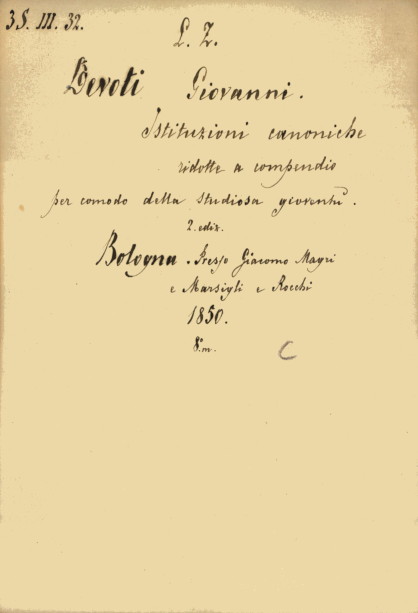 3S. III. 32.
L. Z.
Devoti Giovanni.
Istituzioni canoniche
ridotte a compendio
per comodo della studiosa gioventù.
2. ediz.
Bologna. Presso Giacomo Magri
e Marsigli e Rocchi
1850.
8.° m.
C